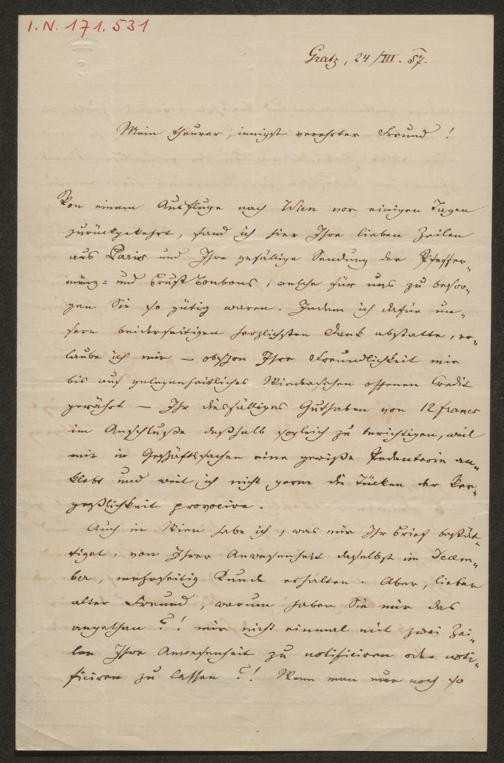 I.N. 171.531
Gratz, 24/III. 57.
Mein theurer, innigst verehrter Freund!
Von einem Ausfluge nach Wien vor einigen Tagen
zurückgekehrt, fand ich hier Ihre lieben Zeilen
aus Paris und Ihre gefällige Sendung der Pfeffer-
münz- und Brust Bonbons, welche für uns zu besor-
gen Sie so gütig waren. Indem ich dafür un-
sern beiderseitigen herzlichsten Dank abstatte, er-
laube ich mir – obschon Ihre Freundlichkeit mir
bis auf gelegenheitliches Wiedersehen offenen Credit
gewährt – Ihr diesfälliges Guthaben von 12 francs
im Anschluße deßhalb sogleich zu berichtigen, weil
mir in Geschäftssachen eine gewiße Pedanterie an-
klebt und weil ich nicht gerne die Tücken der Ver-
geßlichkeit provocire.
Auch in Wien habe ich, was mir Ihr Brief bestät-
tiget, von Ihrer Anwesenheit daselbst im Decem-
ber, mehrseitig Kunde erhalten. Aber, lieber
alter Freund, warum haben Sie mir das
angethan?! mir nicht einmal mit zwei Zei-
len Ihre Anwesenheit zu notificiren oder noti-
ficiren zu lassen?! Wenn man nur noch so